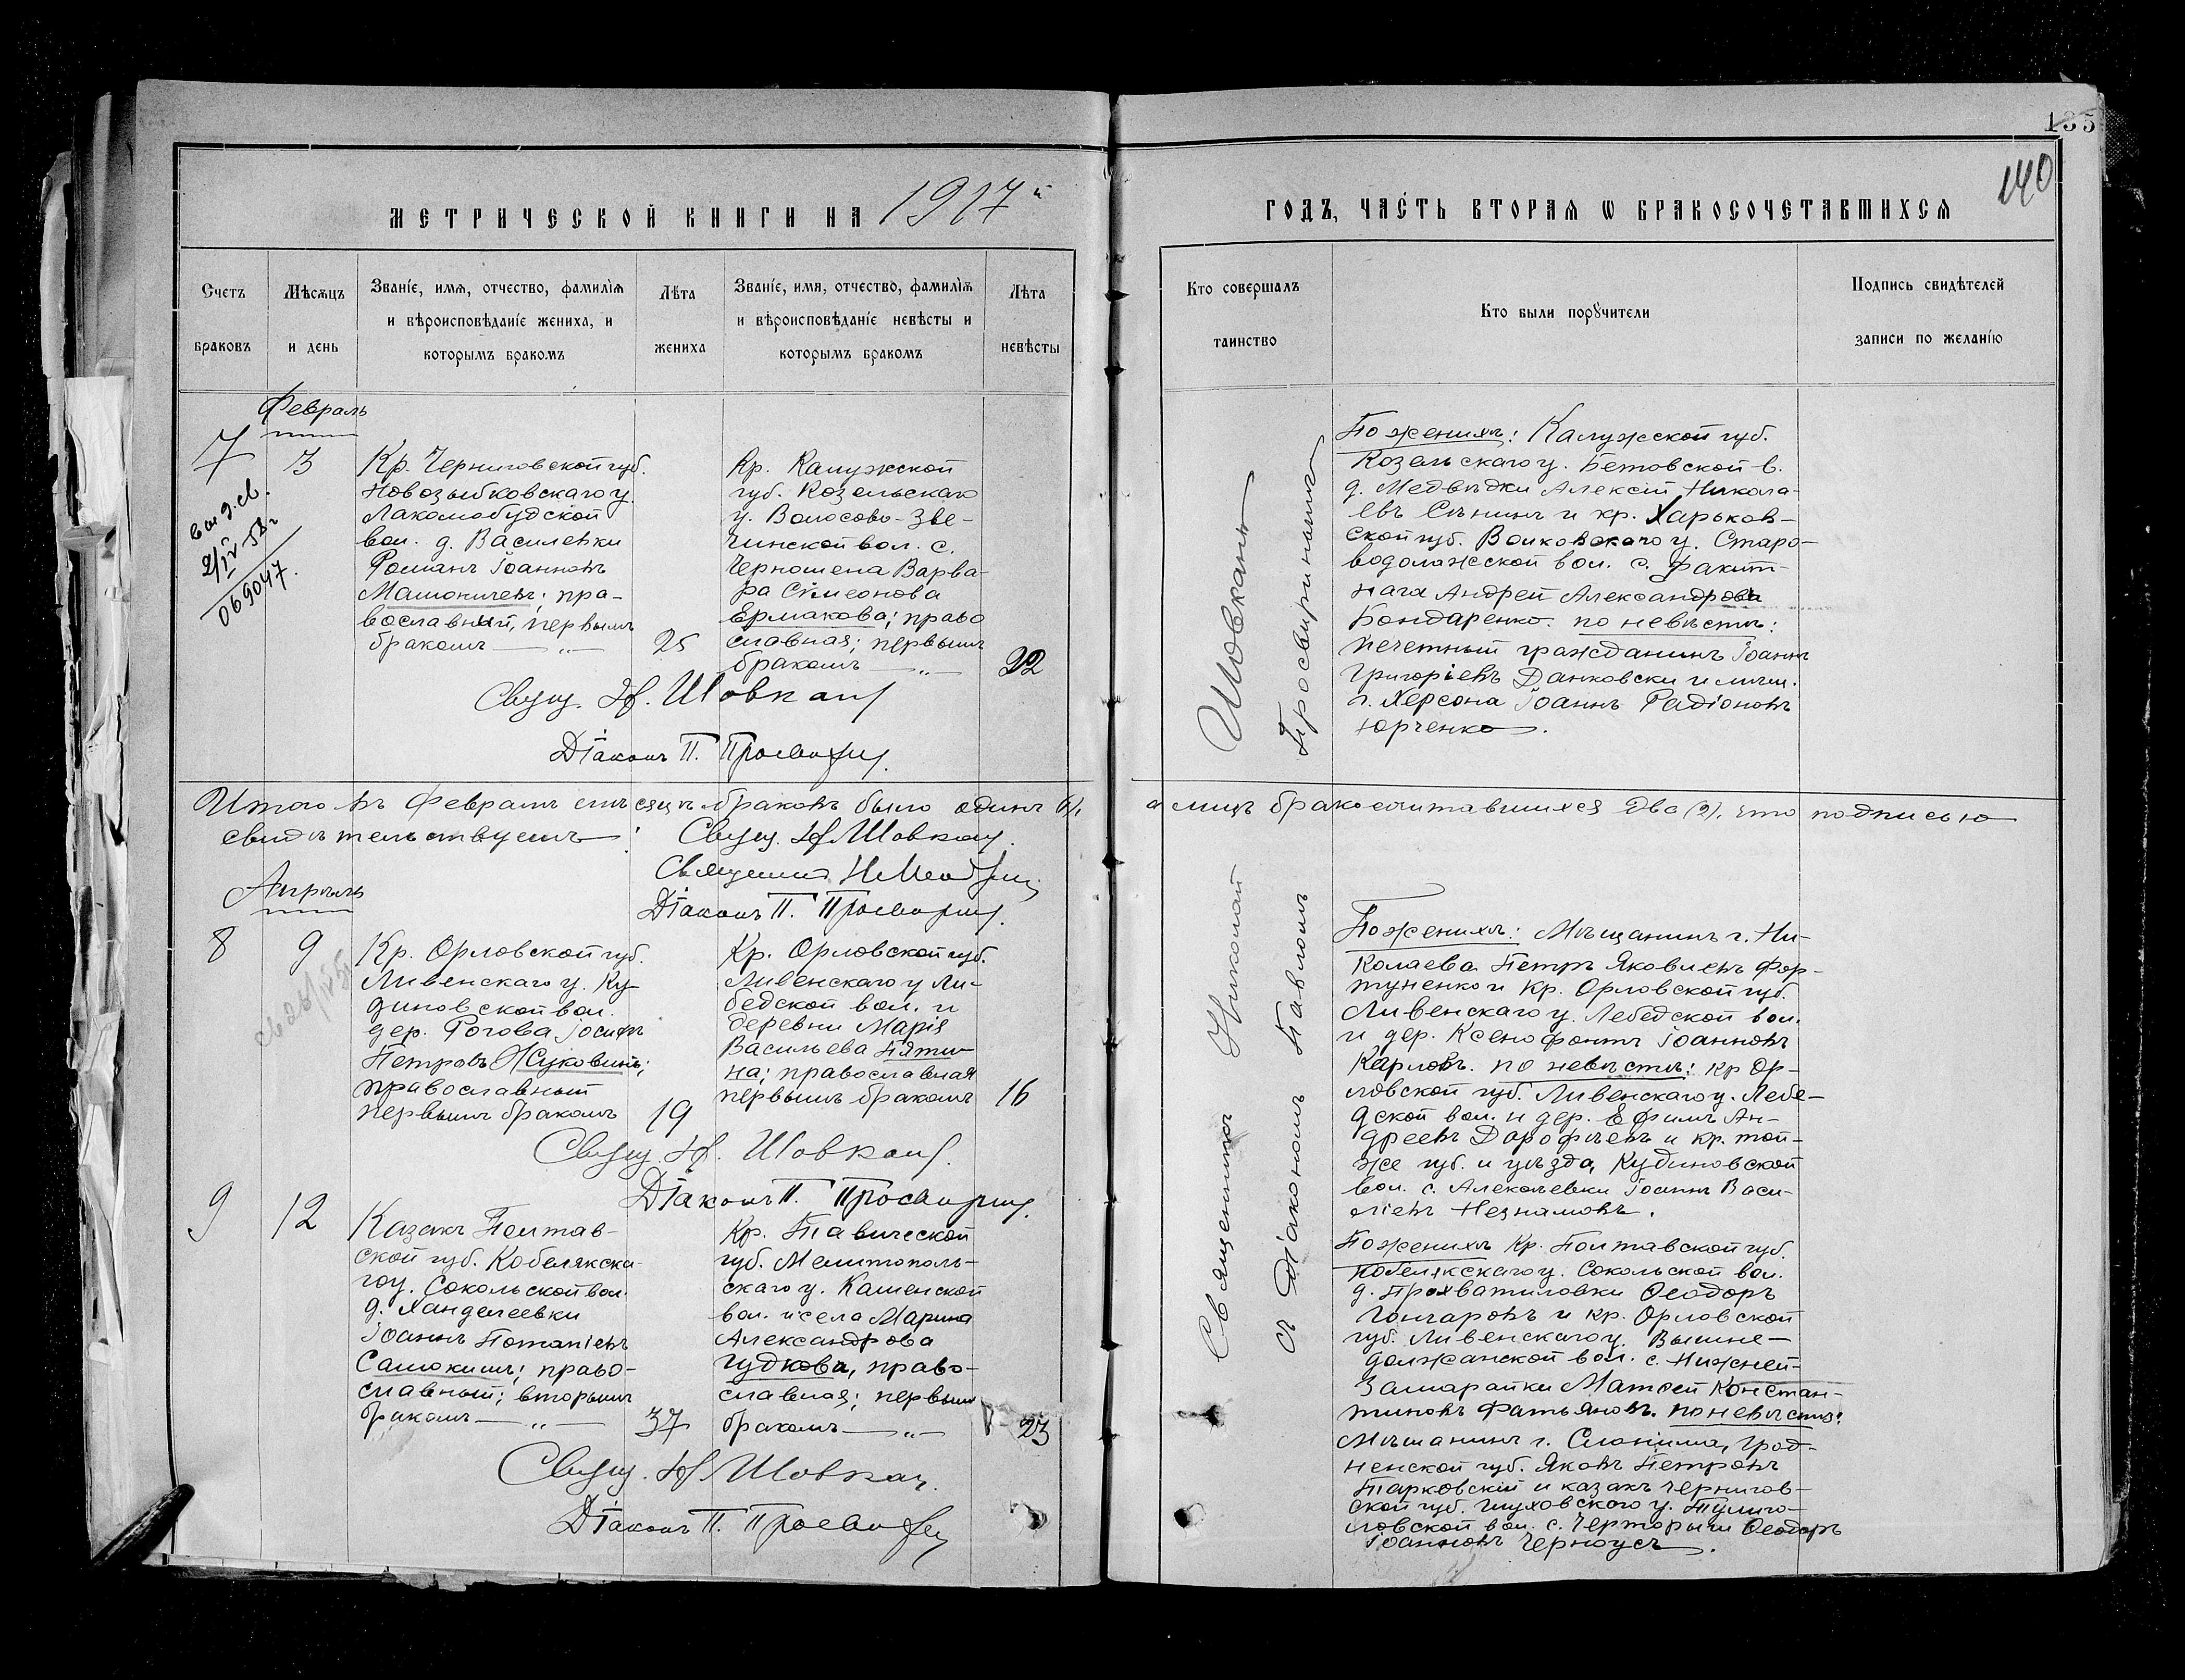 135
140
МЕТРИЧЕСКОЙ КНИГИ НА 1917й
ГОДЪ, ЧАСТЬ ВТОРАЯ Ѡ БРАКОСОЧЕТАВШИХСЯ
Счетъ браковъ
Мѣсяцъ и день
Званіе, имя, отчество, фамилія
и вѣроисповѣданіе жениха, и
которымъ бракомъ
Лѣта жениха
Званіе, имя, отчество, фамилія
и вѣроисповѣданіе невѣсты и
которымъ бракомъ
Лѣта невѣсты
Кто совершалъ таинство
Кто были порꙋчители
Подпись свидѣтелей
записи по желанію
Февраль
7
3
Выд. св.
2/IV 58 г
069047.
Кр. Черниговской губ.
Новозыбковскаго у.
Лакомобудской
вол. д. Василевки
Романъ Іоанновъ
Мамоничевъ; пра-
вославный, первымъ
бракомъ — „ —
25
Кр. Калужской
губ. Козельскаго
у. Волосово-Зве-
гинской вол. с.
Чернышена Варва-
ра Сѵмеонова
Ермакова; право
славная; первымъ
бракомъ — „ —
22
Свящ. Н. Шовкань
Діаконъ П. Просвирнинъ
По женихѣ: Калужской губ.
Козельскаго у. Бетовской в.
д. Медвѣдки Алексій Никола-
евъ Сѣнинъ и кр. Харьков-
ской губ. Волковскаго у. Старо-
водолажской вол. с. Ракит-
наго Андрей Александровъ
Бондаренко. по невѣстѣ:
Почетный гражданинъ Іоаннъ
Григоріевъ Данковски и мѣщ.
г. Херсона Іоаннъ Радіоновъ
Юрченко.
Шовкань
Просвирнинъ
Итого въ Февралѣ мѣсяцѣ браковъ было одинъ (1),
а лицъ бракосочитавшихся два (2), что подписью
свидѣтельствуемъ: Свящ. Н. Шовкань.
Священникъ Н.
Діаконъ П. Просвирнинъ.
Апрѣль
8
9
Кр. Орловской губ.
Ливенскаго у. Ку-
диновской вол.
дер. Рогова Іосифъ
Петровъ Жуковинъ;
православный
первымъ бракомъ
19
Кр. Орловской губ.
Ливенскаго у Ли-
бедской вол. и
деревни Марія
Васильева Пяти-
на; православная
первымъ бракомъ
16
Свящ. Н. Шовкань.
Діаконъ П. Просвирнинъ.
По женихѣ: Мѣщанинъ г. Ни-
колаева Петръ Яковлевъ Фор-
туненко и Кр. Орловской губ.
Ливенскаго у. Лебедской вол.
и дер. Ксенофонтъ Іоанновъ
Карловъ. по невѣстѣ: кр Ор-
ловской губ. Ливенскаго у. Лебе-
дской вол. и дер. Ефимъ Ан-
дреевъ Дорофѣевъ и кр. той-
же губ. и уѣзда, Кудиновской
вол. с. Алексѣевки Іоаннъ Васи-
ліевъ Незнамовъ.
Священникъ Николай
съ Діакономъ Павломъ
9
12
Казакъ Полтав-
ской губ. Кобелякска-
го у. Сокольской вол.
д. Ханделеевки
Іоаннъ Потапіевъ
Самокишъ; право-
славный; вторымъ
бракомъ — „ —
37
Кр. Тавической
губ. Мелитополь-
скаго у. Каменской
вол. и села Марина
Александрова
Гудкова, право-
славная; первым
бракомъ — „ —
23
Свящ. Н. Шовкань.
Діаконъ П. Просвирнинъ
По женихѣ Кр. Полтавской губ.
Кобелякскаго у. Сокольской вол.
д. Прохватиловки Ѳеодоръ
Гончаровъ и кр. Орловской
губ. Ливенскаго у. Вышне-
должанской вол. с. Нижней-
Замарайки Матѳей Констан-
тиновъ Фатьяновъ. по невѣстѣ:
Мѣщанинъ г. Слонима, Грод-
ненской губ. Яковъ Петровъ
Тарковскій и казакъ Чернигов-
ской губ. Глуховскаго у. Тулиго-
ловской вол. с. Черторыги Ѳеодоръ
Іоанновъ Черноусъ.